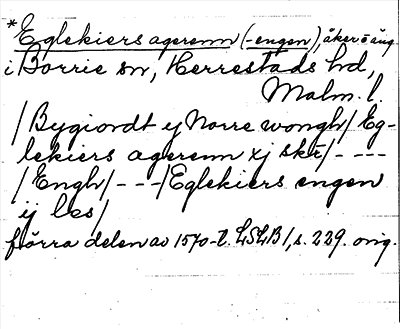 *Eglekiers agerenn (-engen), åker o äng
i Borrie sn, Herrestads hd,
Malm. l.
/Bygiordt y Norre wongh/ Eg-
lekiers agerenn xj skr/- - - -
/Engh/ - - -/Eglekiers engen
ij les/
förra delen av 1570-t. LSLB 1, s. 229. orig.